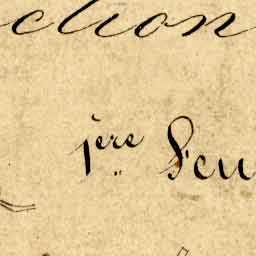 ction
1ère Feu